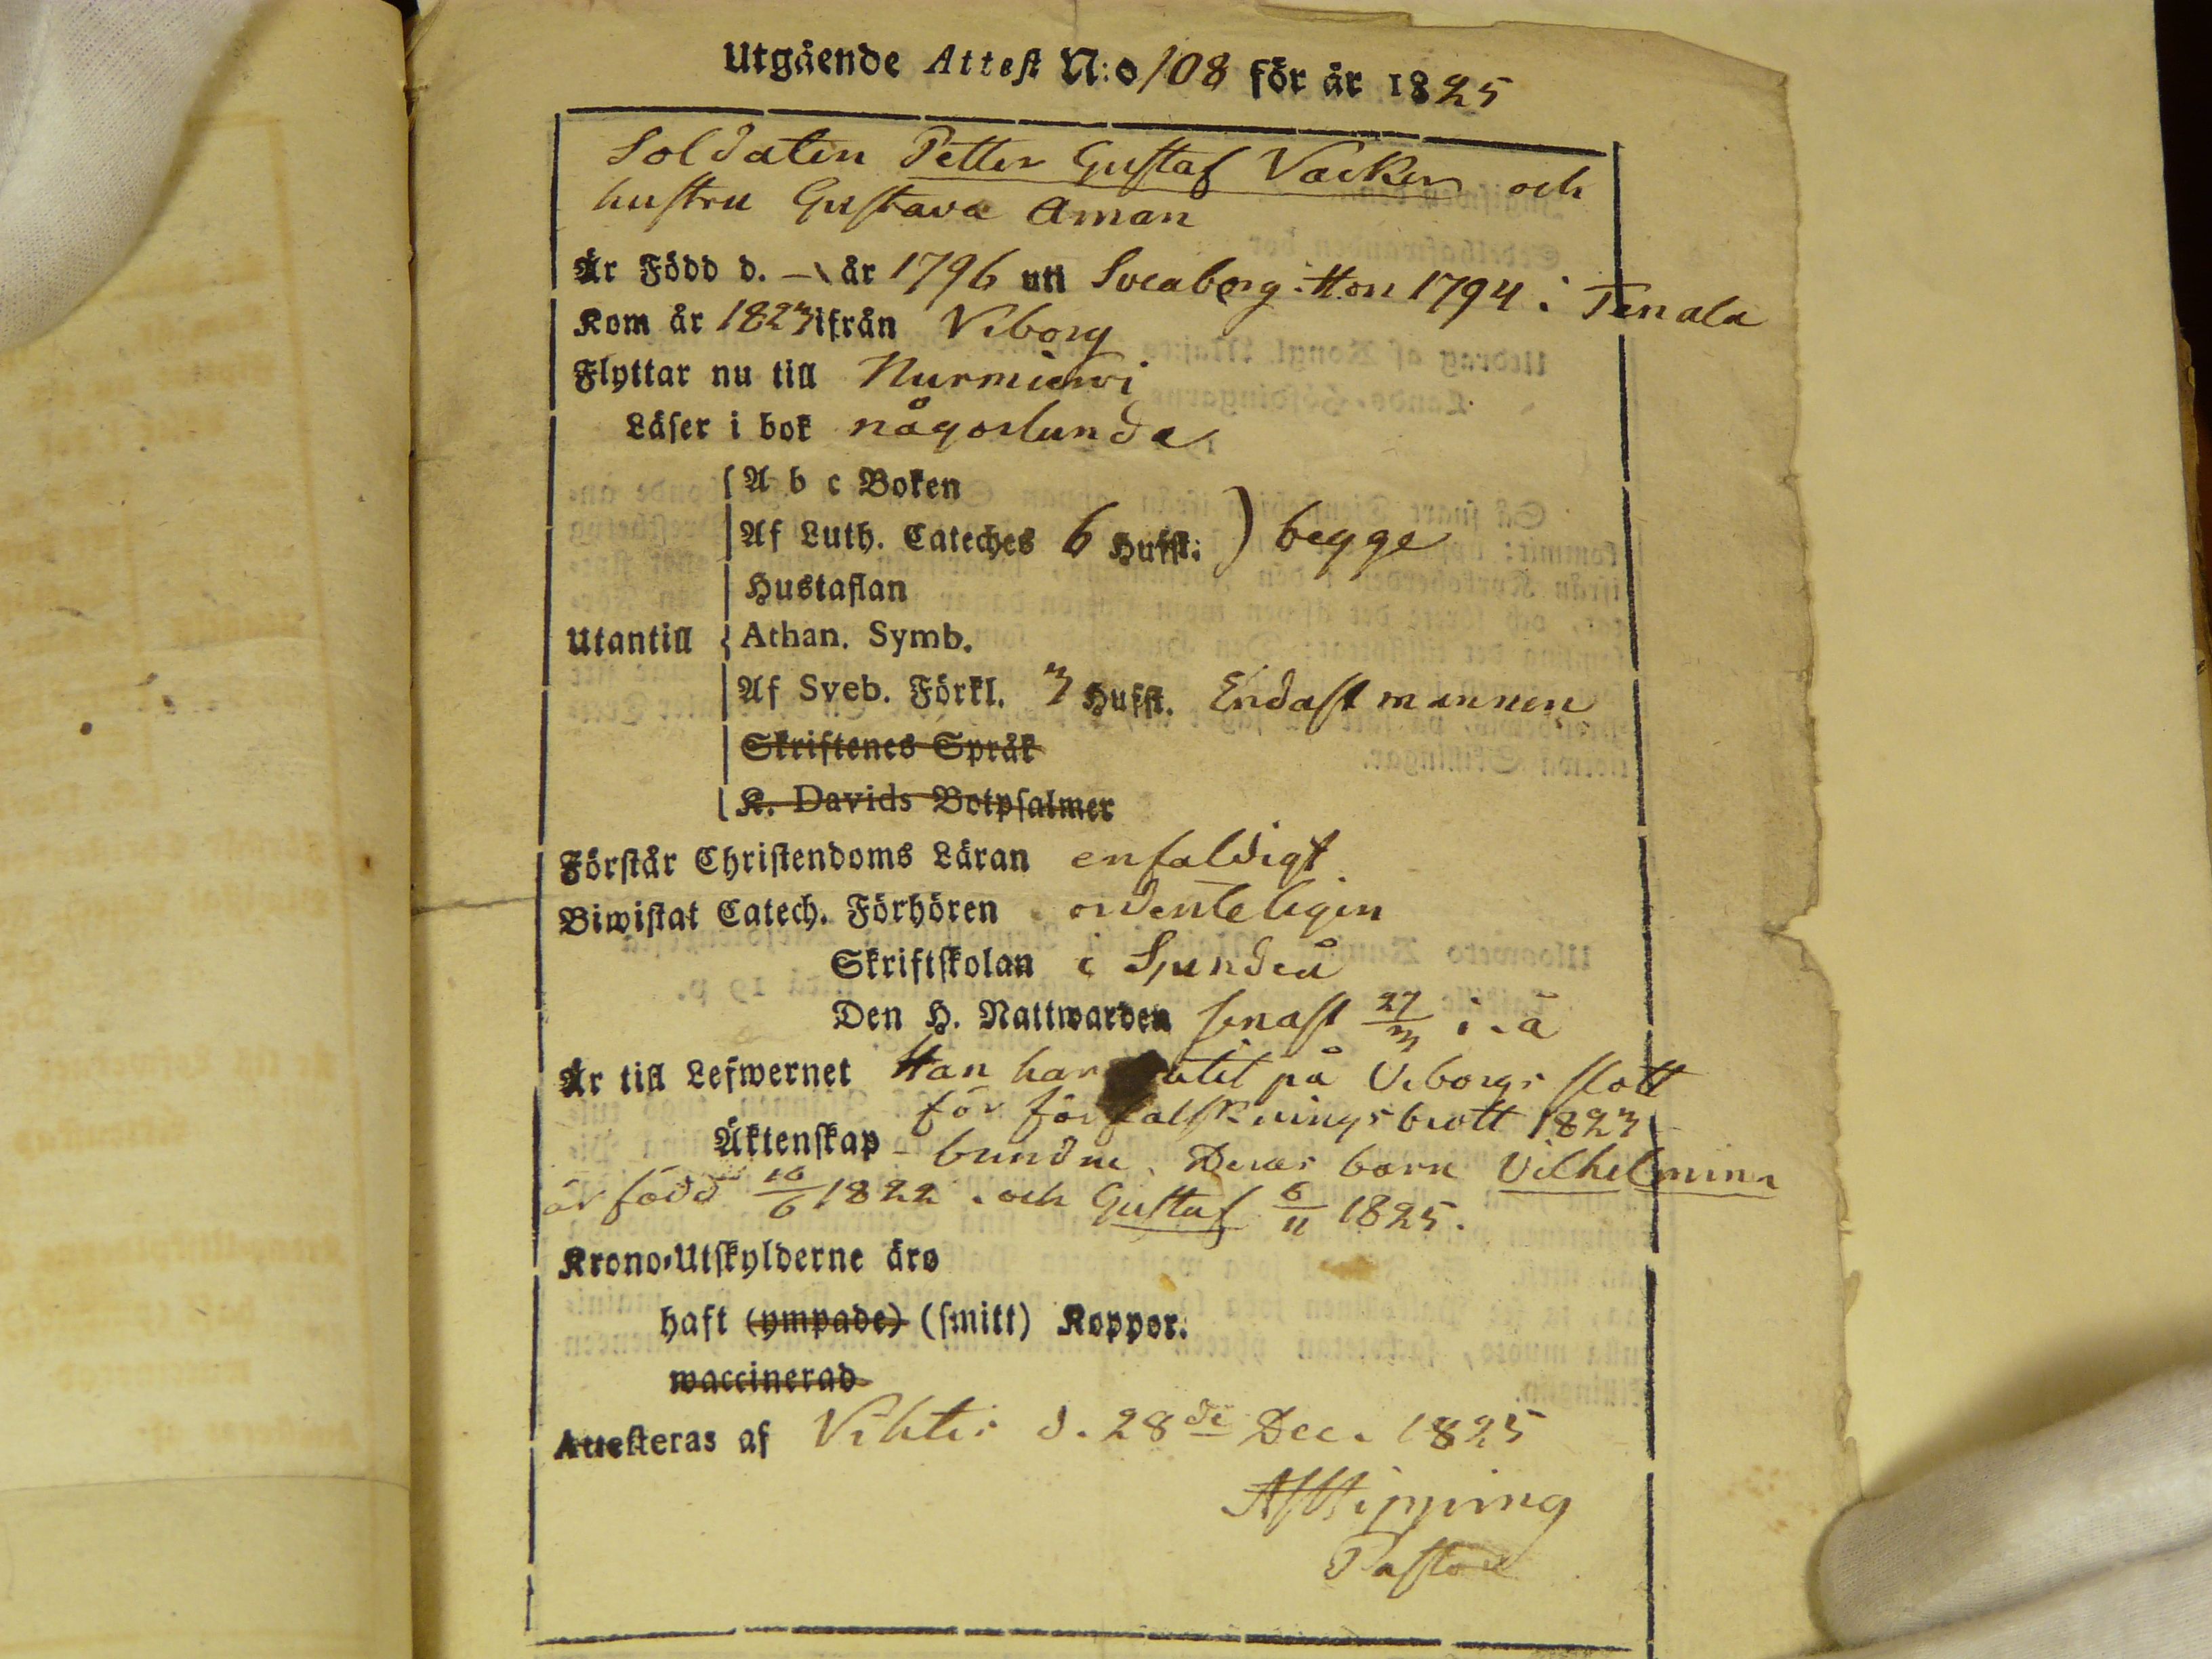 Utgående Attest N:o 108 för år 1825
Soldaten Petter Gustaf Vacker och
hustru Gustava Aman
Är Född d. – år 1796 uti Sveaborg. Hon 1794 i Tenala
Kom år 1823 ifrån Viborg
Flyttar nu till Nurmierwi
Läser i bok någorlunda
A b c Boken
Af Luth. Cateches 6 Hufst. ) begge
Hustaflan
Utantill Athan. Symb.
Af Sveb. Förkl. 3 Hufst. Endast mannen
Skriftenes Språk
K. Davids Botpsalmer
Förstår Christendoms Läran enfaldigt
Biwistat Catech. Förhören ordenteligen
Skriftskolan i Sjundeå
Den H. Nattwarden senast 27/3 i. å
Är till Lefwernet Han har utit på Viborgs slott
för förfalskningsbrott 1823
Äktenskap - bundne. Deras barn Vilhelmina
är född 10/6 1822. och Gustaf 6/11 1825.
Krono-Utskylderne äro
haft (ympade) (smitt) Koppor.
waccinerad
Attesteras af Vihtis d. 28de Dec. 1825
Hipping
Pastor